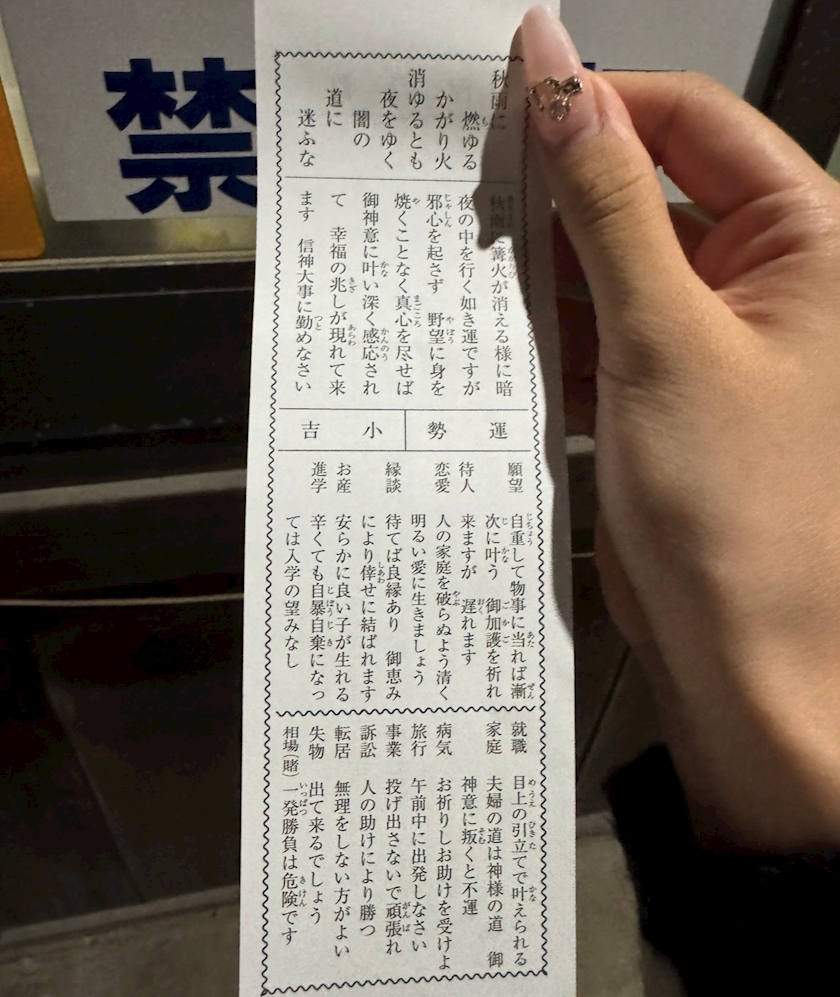 禁
秋雨に
燃ゆる
かがり火
消ゆるとも
夜をゆく
闇の
道に
迷ふな
秋雨に篝火が消える様に暗
夜の中を行く如き運ですが
邪心を起さず　野望に身を
焼くことなく真心を尽せば
御神意に叶い深く感応され
て　幸福の兆しが現れて来
ます　信神大事に勤めなさい
運勢　小吉
願望　自重して物事に当れば漸
次に叶う　御加護を祈れ
待人　来ますが　遅れます
恋愛　人の家庭を破らぬよう清く
明るい愛に生きましょう
縁談　待てば良縁あり　御恵み
により倖せに結ばれます
お産　安らかに良い子が生れる
進学　辛くても自暴自棄になっ
ては入学の望みなし
就職　目上の引立てで叶えられる
家庭　夫婦の道は神様の道　御
神意に叛くと不運
病気　お祈りしお助けを受けよ
旅行　午前中に出発しなさい
事業　投げ出さないで頑張れ
訴訟　人の助けにより勝つ
転居　無理をしない方がよい
失物　出て来るでしょう
相場(賭)　一発勝負は危険です